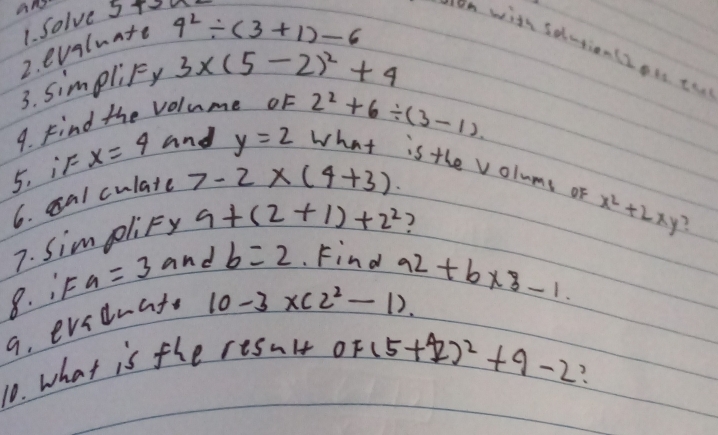 with solution
1. Solve 5 + 3
2. evaluate 9² ÷ (3 + 1) - 6
3. Simplify 3 × (5 - 2)² + 9
4. Find the volume OF 2² + 6 ÷ (3 - 1).
5. iF x = 9 and y = 2 what is the volume OF x² + 2xy?
6. calculate 7 - 2 × (9 + 3).
7. Simplify 9 + (2 + 1) + 2²?
8. iF a = 3 and b = 2. Find a2 + b × 3 - 1.
9. evaluate 10 - 3 × (2² - 1).
10. what is the result OF (5 + 2)² + 9 - 2?